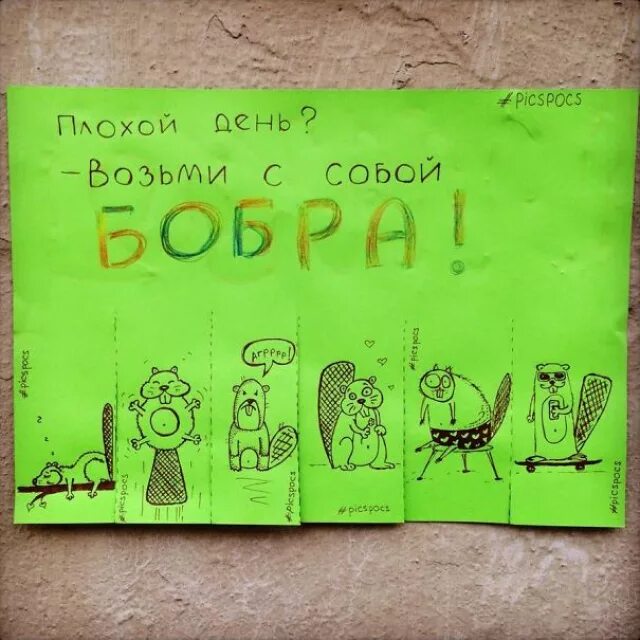 #PICSPOCS
Плохой день?
-Возьми с собой
БОБРА!
#picspocs
z z
#picspocs
Агрррр!
#picspocs
#picspocs
#picspocs
#picspocs